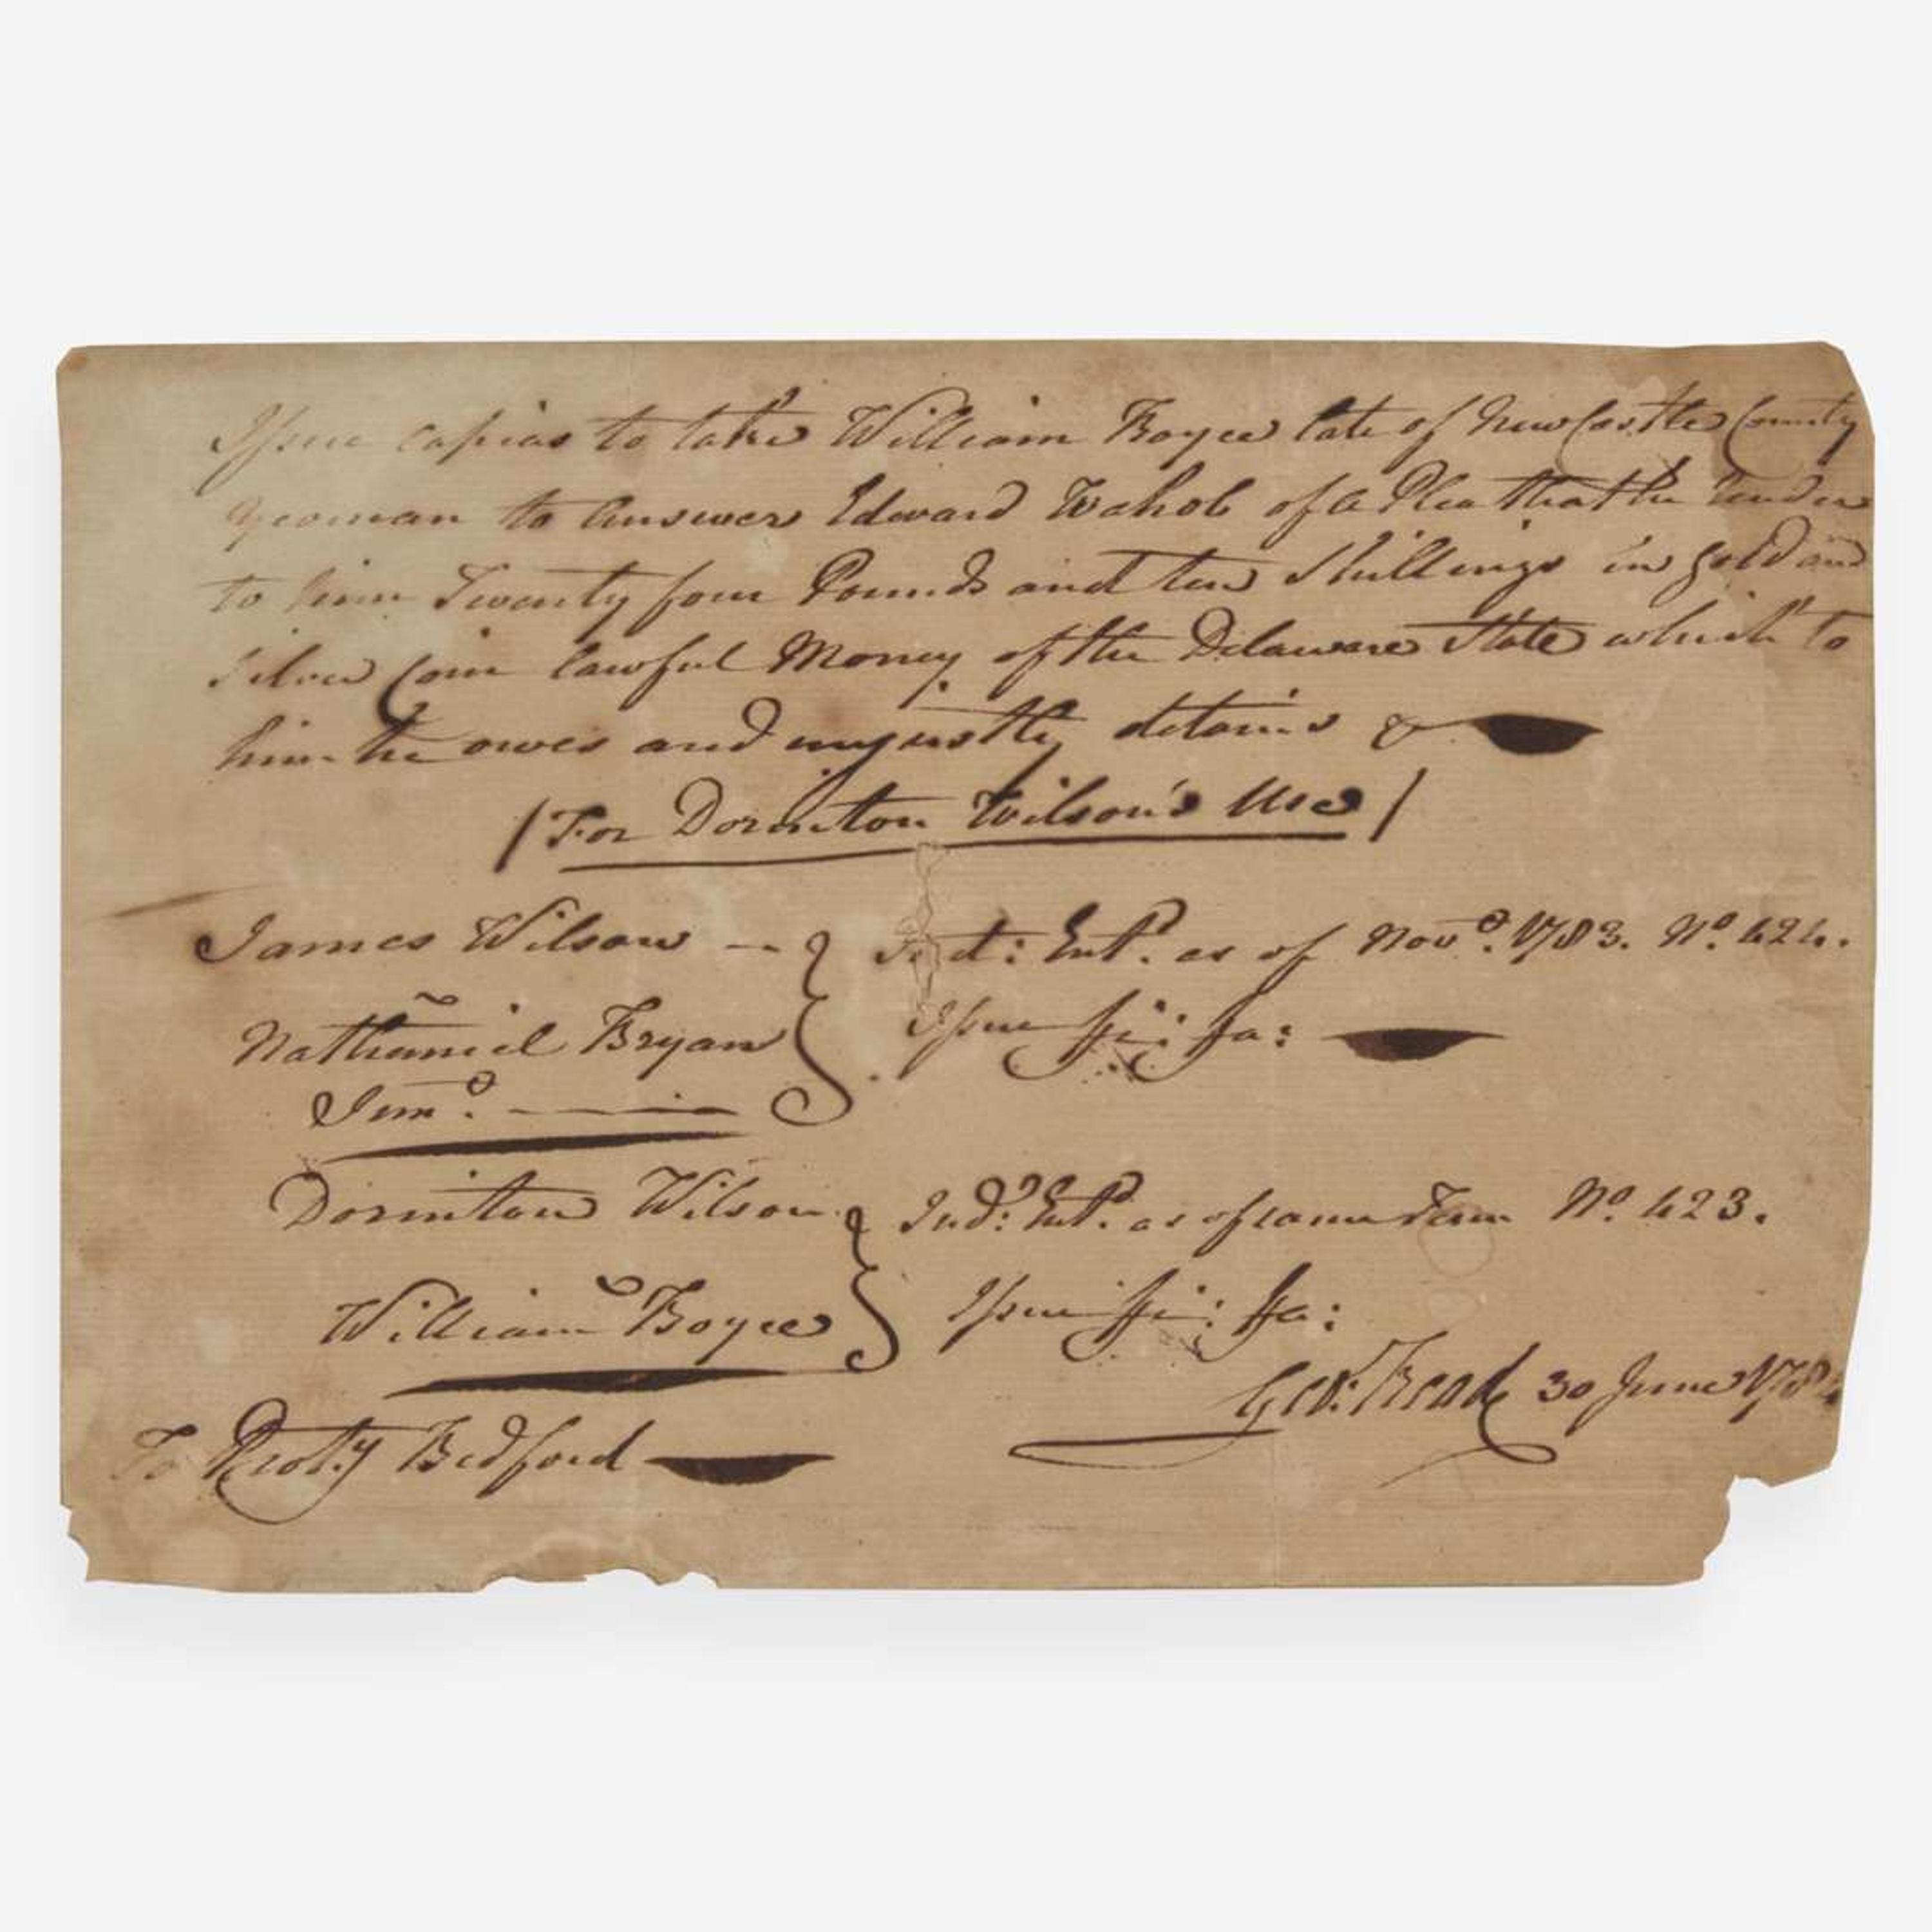 Issue capias to take William Boyce late of New Castle County
yeoman to answer Edward Wahob of a Plea that he render
to him Twenty four Pounds and ten Shillings in gold and
silver Coin lawful Money of the Delaware State which to
him he owes and unjustly detains &
/ For Dorinton Wilson's Use /
James Wilson — Jud.t: Ent.d as of Nov.r 1783. No. 424.
Nathaniel Bryan Issue fi: fa:
Jun.r
Dorinton Wilson Jud.t: Ent.d as of same Term No. 423.
William Boyce Issue fi: fa:
Geo: Read 30 June 1784
To Prot.y Bedford